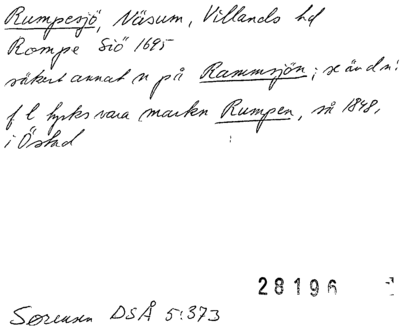 Rumpesjö, Näsum, Villands hd
Rompe Siö 1695
säkert annat n på Rammsjön; se änd n!
f l tycks vara marken Rumpen, så 1848,
i Östad
28196
Sørensen DSÅ 5:373